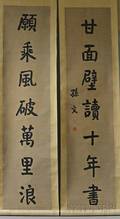 甘面壁讀十年書
孫文
願乘風破萬里浪